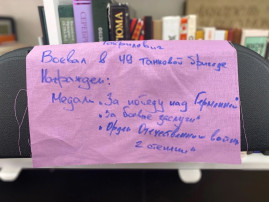 Воевал в 49 танковой бригаде
Награжден:
Медали • За победу над Германией
• За боевые заслуги"
• Орден Отечественной войны
2 степени